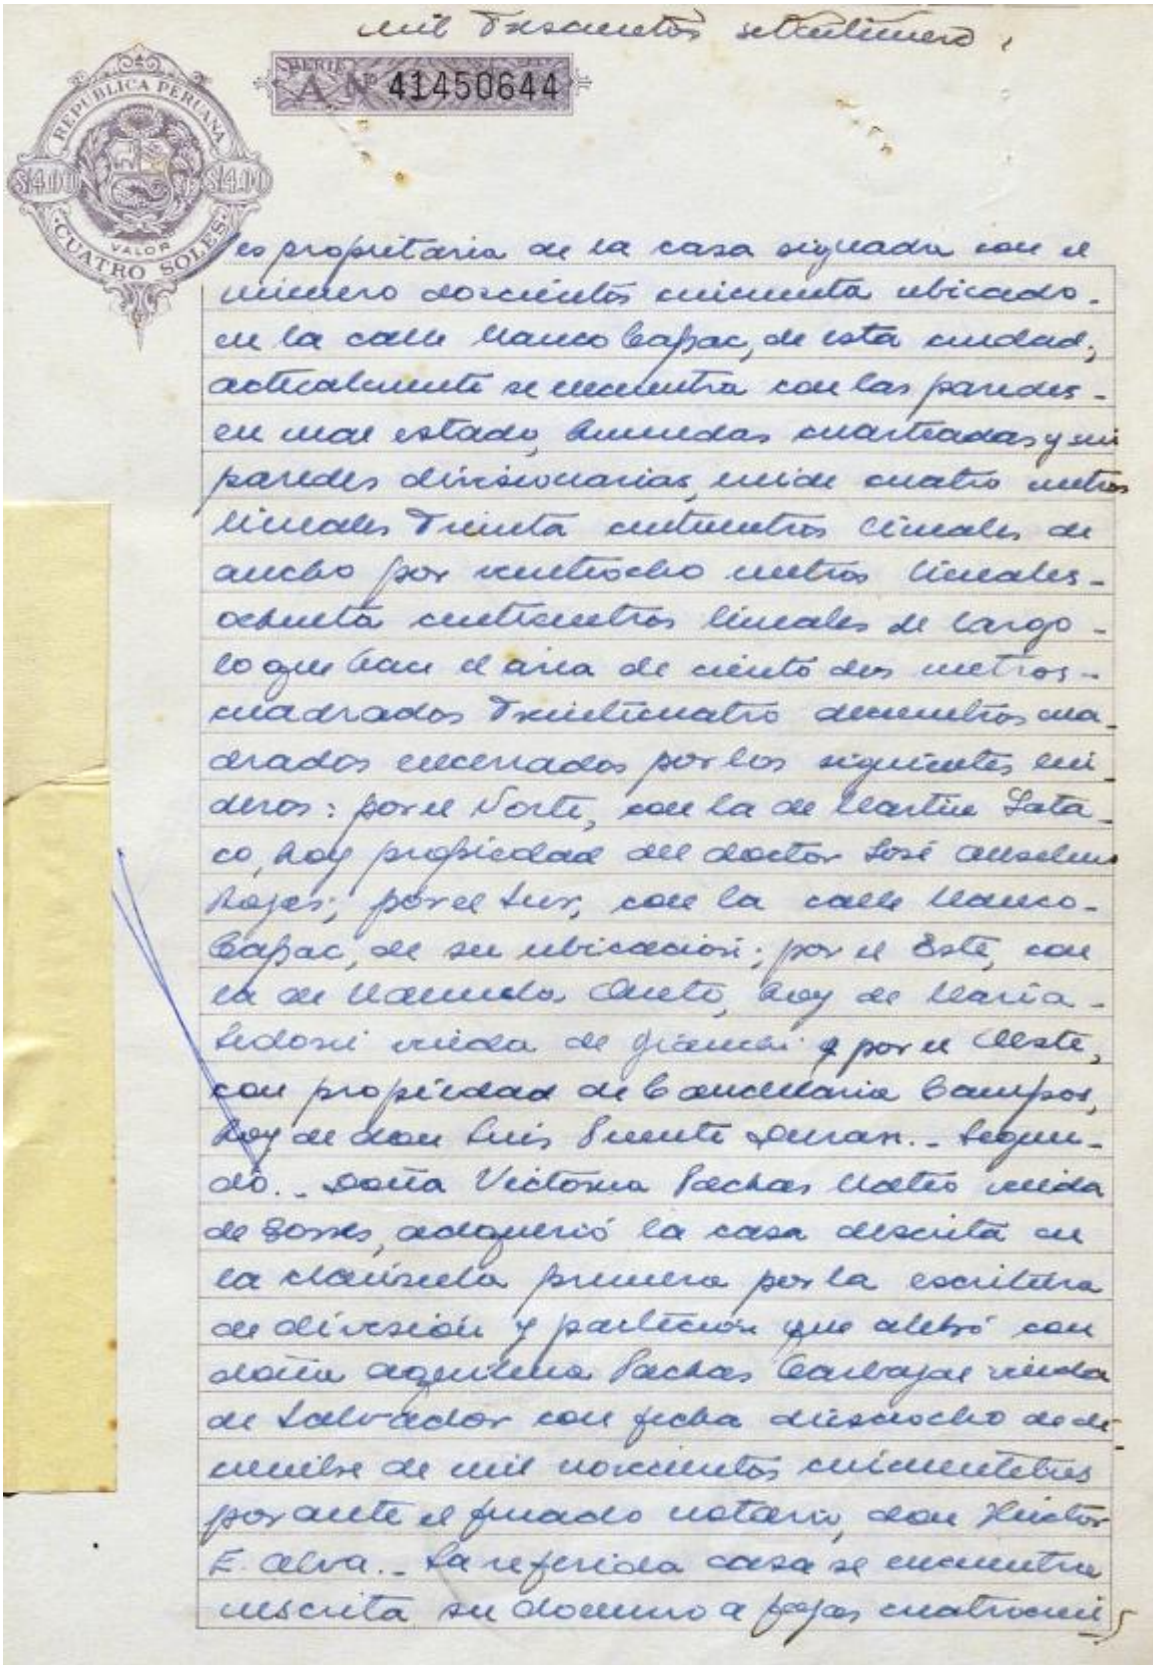 mil Trescientos setentinueve
SERIE
A Nº 41450644
REPUBLICA PERUANA
S/.4.00 S/.4.00
VALOR
CUATRO SOLES
es propietaria de la casa signada con el
número doscientos cincuenta ubicado.
en la calle Manco Capac, de esta ciudad,
actualmente se encuentra con las paredes -
en mal estado, humedas cuarteadas y sin
paredes divisionarias, mide cuatro metros
lineales Treinta centimetros lineales de
ancho por ventiocho metros lineales -
ochenta centimetros lineales de largo -
lo que hace el area de ciento dos metros -
cuadrados Treinticuatro decimetros cua-
drados encerrados por los siguientes lin-
deros: por el Norte, con la de Martin Sata-
co, hoy propiedad del doctor José Anselmo
Rojas; por el Sur, con la calle Manco -
Capac, de su ubicación; por el Este, con
la de Manuela hoy de Maria -
viuda de y por el Oeste,
con propiedad de Candelaria Campos,
hoy de don Luis Puente Duran. - Segun-
do. - Doña Victoria Pachas Mateo viuda
de Torres, adquirió la casa descrita en
la clausula primera por la escritura
de división y partición que alebró con
doña Aquilina Pachas Carbajal viuda
de Salvador con fecha dieciocho de di-
ciembre de mil novecientos cincuentitres
por ante el finado notario, don Héctor
E. Alva. - La referida casa se encuentra
inscrita su dominio a fojas cuatrocien